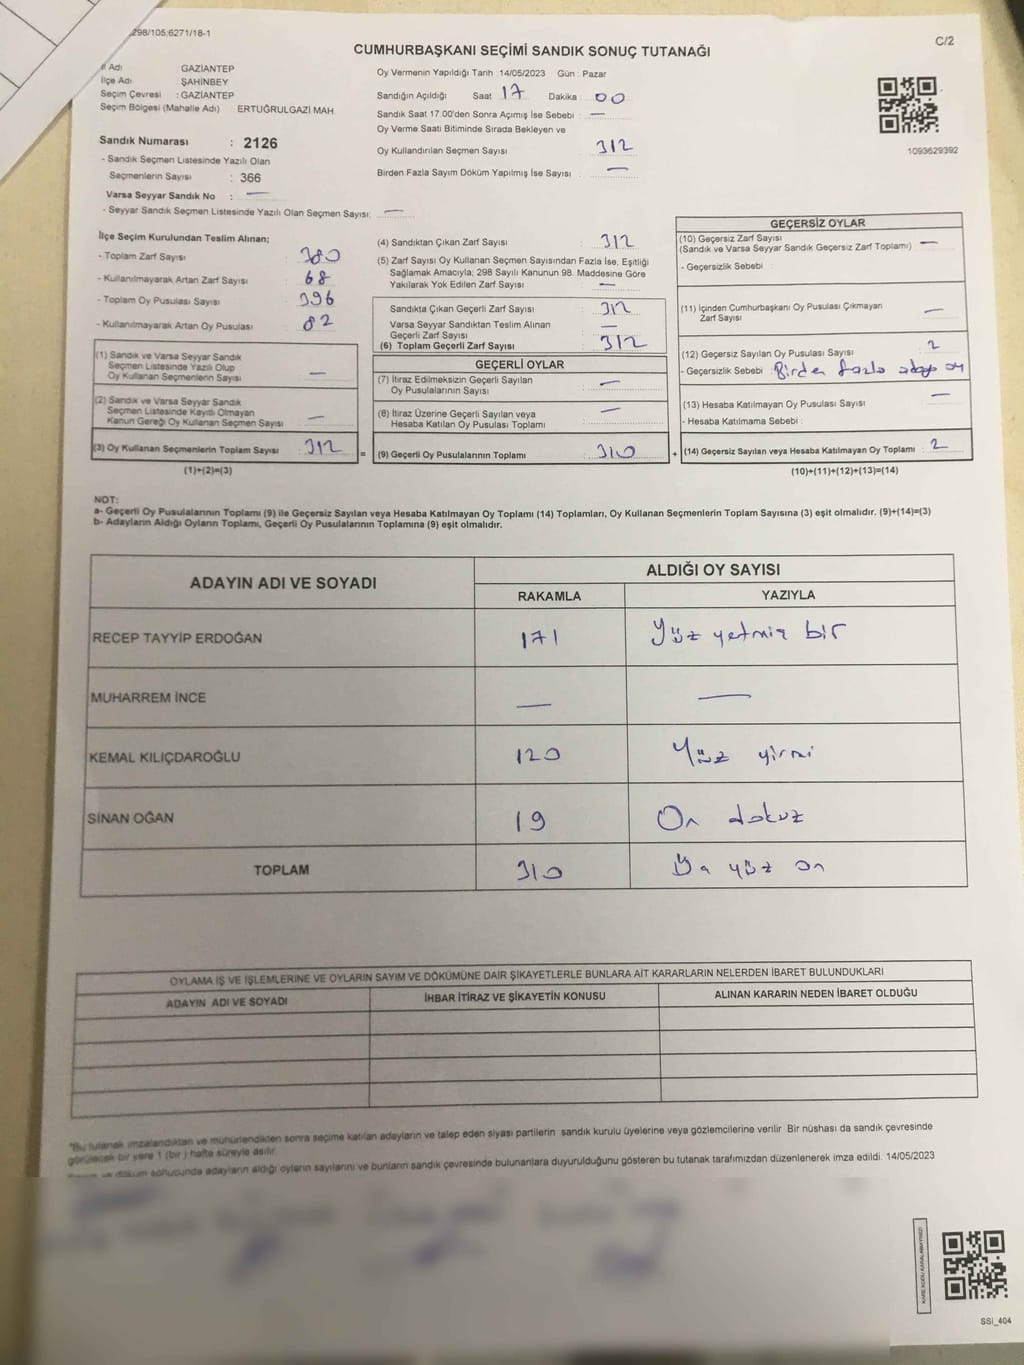 298/105;6271/18-1
C/2
CUMHURBAŞKANI SEÇİMİ SANDIK SONUÇ TUTANAĞI
İl Adı : GAZİANTEP
İlçe Adı : ŞAHİNBEY
Seçim Çevresi : GAZİANTEP
Seçim Bölgesi (Mahalle Adı) : ERTUĞRULGAZİ MAH.
Sandık Numarası : 2126
- Sandık Seçmen Listesinde Yazılı Olan
Seçmenlerin Sayısı : 366
Varsa Seyyar Sandık No : —
- Seyyar Sandık Seçmen Listesinde Yazılı Olan Seçmen Sayısı: —
Oy Vermenin Yapıldığı Tarih 14/05/2023 Gün : Pazar
Sandığın Açıldığı Saat 17 Dakika 00
Sandık Saat 17.00'den Sonra Açımış İse Sebebi : —
Oy Verme Saati Bitiminde Sırada Bekleyen ve
Oy Kullandırılan Seçmen Sayısı 312
Birden Fazla Sayım Döküm Yapılmış İse Sayısı : —
1093629392
İlçe Seçim Kurulundan Teslim Alınan;
- Toplam Zarf Sayısı 380
- Kullanılmayarak Artan Zarf Sayısı 68
- Toplam Oy Pusulası Sayısı 396
- Kullanılmayarak Artan Oy Pusulası 82
(1) Sandık ve Varsa Seyyar Sandık
Seçmen Listesinde Yazılı Olup
Oy Kullanan Seçmenlerin Sayısı —
(2) Sandık ve Varsa Seyyar Sandık
Seçmen Listesinde Kayıtlı Olmayan
Kanun Gereği Oy Kullanan Seçmen Sayısı —
(3) Oy Kullanan Seçmenlerin Toplam Sayısı : 312
(1)+(2)=(3)
(4) Sandıktan Çıkan Zarf Sayısı 312
(5) Zarf Sayısı Oy Kullanan Seçmen Sayısından Fazla İse, Eşitliği
Sağlamak Amacıyla; 298 Sayılı Kanunun 98. Maddesine Göre
Yakılarak Yok Edilen Zarf Sayısı —
Sandıkta Çıkan Geçerli Zarf Sayısı 312
Varsa Seyyar Sandıktan Teslim Alınan
Geçerli Zarf Sayısı —
(6) Toplam Geçerli Zarf Sayısı 312
GEÇERLİ OYLAR
(7) İtiraz Edilmeksizin Geçerli Sayılan
Oy Pusulalarının Sayısı —
(8) İtiraz Üzerine Geçerli Sayılan veya
Hesaba Katılan Oy Pusulası Toplamı —
= (9) Geçerli Oy Pusulalarının Toplamı 310
GEÇERSİZ OYLAR
(10) Geçersiz Zarf Sayısı
(Sandık ve Varsa Seyyar Sandık Geçersiz Zarf Toplamı) —
- Geçersizlik Sebebi :
(11) İçinden Cumhurbaşkanı Oy Pusulası Çıkmayan
Zarf Sayısı —
(12) Geçersiz Sayılan Oy Pusulası Sayısı 2
- Geçersizlik Sebebi : Birden fazla aday oy
(13) Hesaba Katılmayan Oy Pusulası Sayısı —
- Hesaba Katılmama Sebebi :
+ (14) Geçersiz Sayılan veya Hesaba Katılmayan Oy Toplamı : 2
(10)+(11)+(12)+(13)=(14)
NOT:
a- Geçerli Oy Pusulalarının Toplamı (9) ile Geçersiz Sayılan veya Hesaba Katılmayan Oy Toplamı (14) Toplamları, Oy Kullanan Seçmenlerin Toplam Sayısına (3) eşit olmalıdır. (9)+(14)=(3)
b- Adayların Aldığı Oyların Toplamı, Geçerli Oy Pusulalarının Toplamına (9) eşit olmalıdır.
ADAYIN ADI VE SOYADI
ALDIĞI OY SAYISI
RAKAMLA YAZIYLA
RECEP TAYYİP ERDOĞAN 171 Yüz yetmiş bir
MUHARREM İNCE — —
KEMAL KILIÇDAROĞLU 120 Yüz yirmi
SİNAN OĞAN 19 On dokuz
TOPLAM 310 Üç yüz on
OYLAMA İŞ VE İŞLEMLERİNE VE OYLARIN SAYIM VE DÖKÜMÜNE DAİR ŞİKAYETLERLE BUNLARA AİT KARARLARIN NELERDEN İBARET BULUNDUKLARI
ADAYIN ADI VE SOYADI İHBAR İTİRAZ VE ŞİKAYETİN KONUSU ALINAN KARARIN NEDEN İBARET OLDUĞU
"Bu tutanak imzalandıktan ve mühürlendikten sonra seçime katılan adayların ve talep eden siyasi partilerin sandık kurulu üyelerine veya gözlemcilerine verilir. Bir nüshası da sandık çevresinde
görülecek bir yere 1 (bir) hafta süreyle asılır.
sonucunda adayların aldığı oyların sayılarını ve bunların sandık çevresinde bulunanlara duyurulduğunu gösteren bu tutanak tarafımızdan düzenlenerek imza edildi. 14/05/2023
KARE KODU KARALAMAYINIZ!
SSİ_404